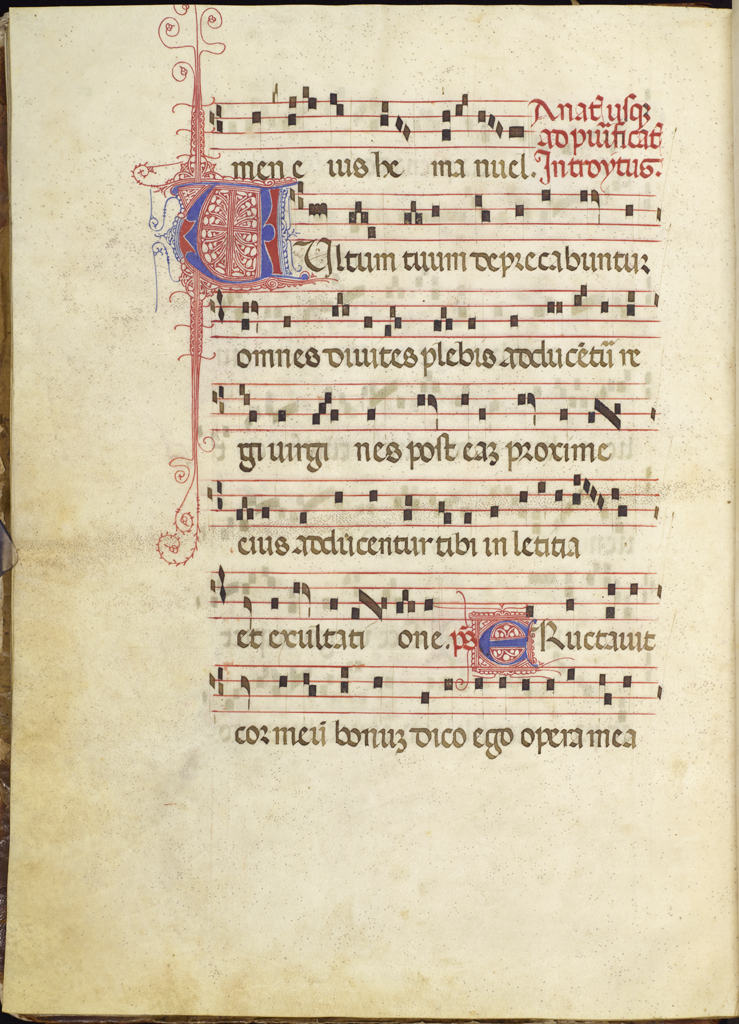 A nat̄ usq̢
ad puīficat̄
men e ius he ma nuel. Introytus.
VUltum tuum deprecabuntur
omnes diuites plebis adducētū re
gi uirgi nes post eaȝ proxime
eius adducentur tibi in letitia
et exultati one. p̄s ERuctauit
cor meū bonuȝ dico ego opera mea